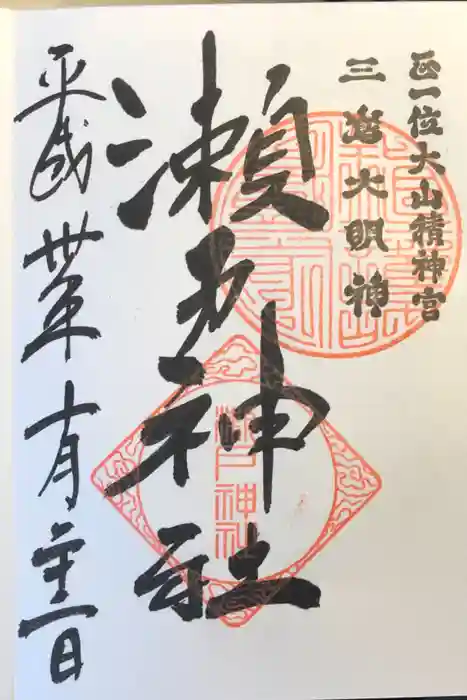 正一位大山積神宮
三嶌大明神
瀬戸神社
瀬戸神社
平成丗年十月日